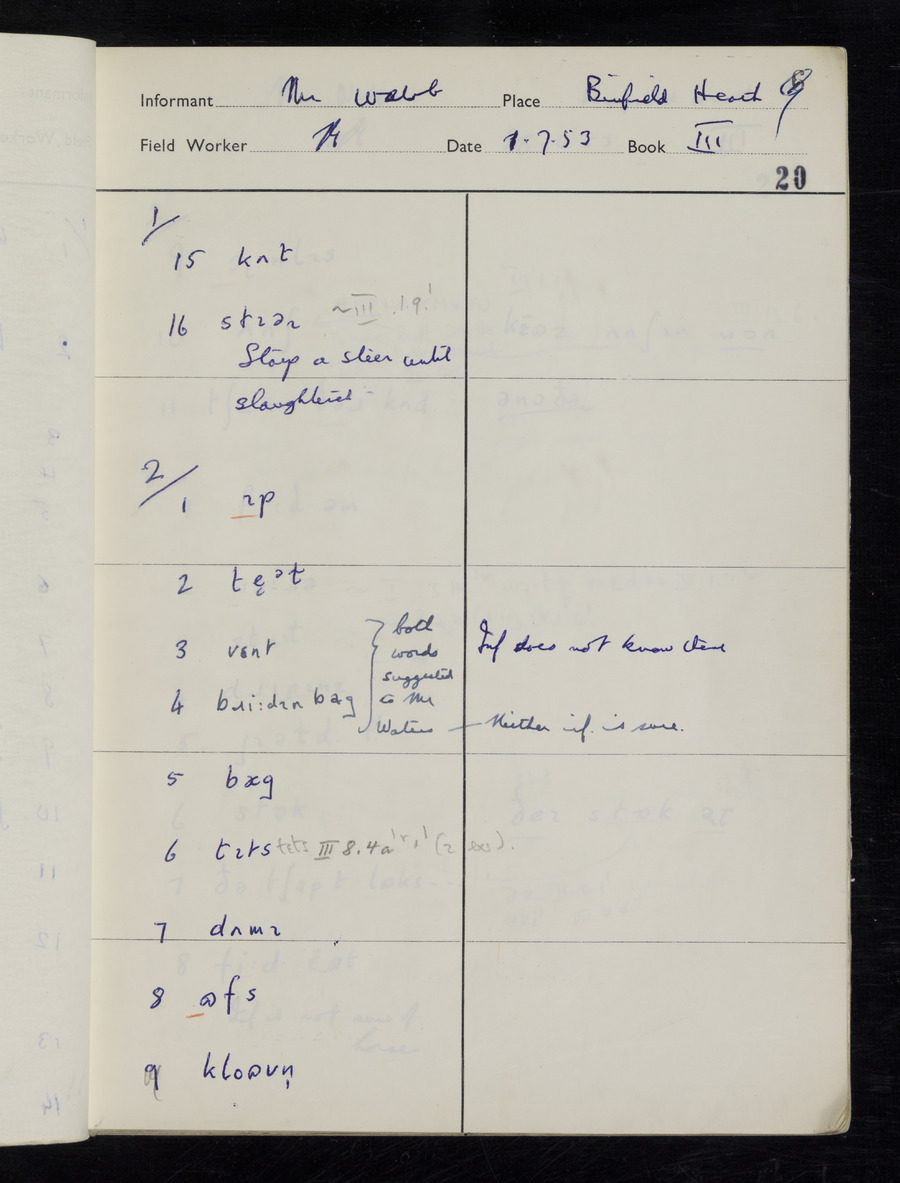 Informant Mr Webb Place Binfield Heath
Field Worker Date 1.7.53 Book III
20
1/
15 kʌt
16 stɪəɹ ~III .1.9!
Stays a steer until
slaughtered
2/
1 ɪp
2 tẹət
3 vɛnt } both words suggested to Mr Waters Inf does not know them
4 bɹi:dɪn bæg — Neither inf. is sure.
5 bæg
6 tɪts tɪts III 8.4a (2 exx).
7 dʌmɪ
8 ɒfs
9 kloɒvn̩